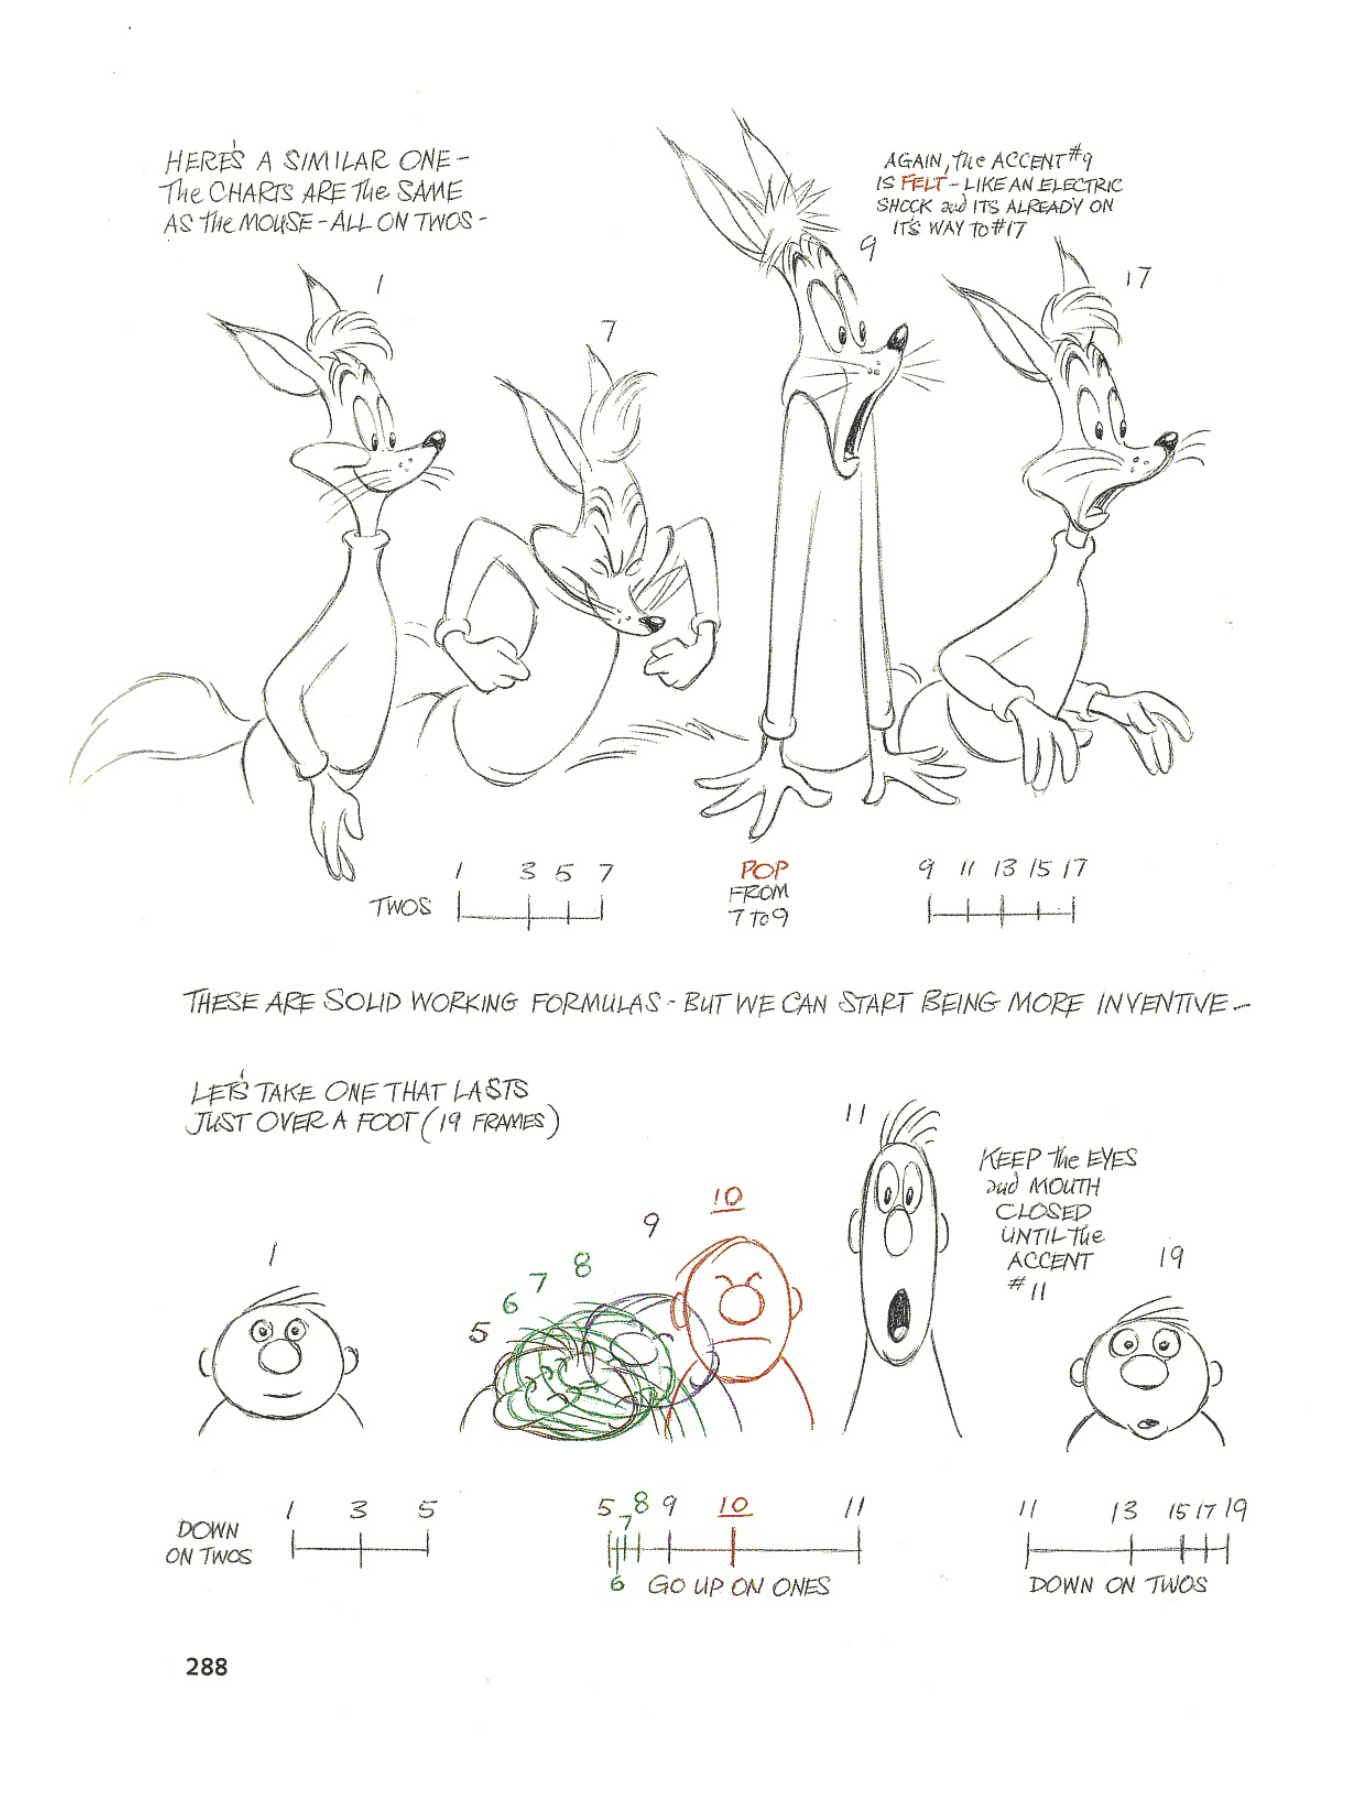 HERE'S A SIMILAR ONE -
The CHARTS ARE The SAME
AS The MOUSE - ALL ON TWOS -
AGAIN, The ACCENT #9
IS FELT - LIKE AN ELECTRIC
SHOCK and ITS ALREADY ON
IT'S WAY TO #17
1
7
9
17
1 3 5 7
TWOS
POP
FROM
7 TO 9
9 11 13 15 17
THESE ARE SOLID WORKING FORMULAS - BUT WE CAN START BEING MORE INVENTIVE -
LET'S TAKE ONE THAT LASTS
JUST OVER A FOOT (19 FRAMES)
KEEP The EYES
and MOUTH
CLOSED
UNTIL The
ACCENT
#11
1
5
6
7
8
9
10
11
19
1 3 5
DOWN
ON TWOS
5 7 8 9 10 11
6 GO UP ON ONES
11 13 15 17 19
DOWN ON TWOS
288